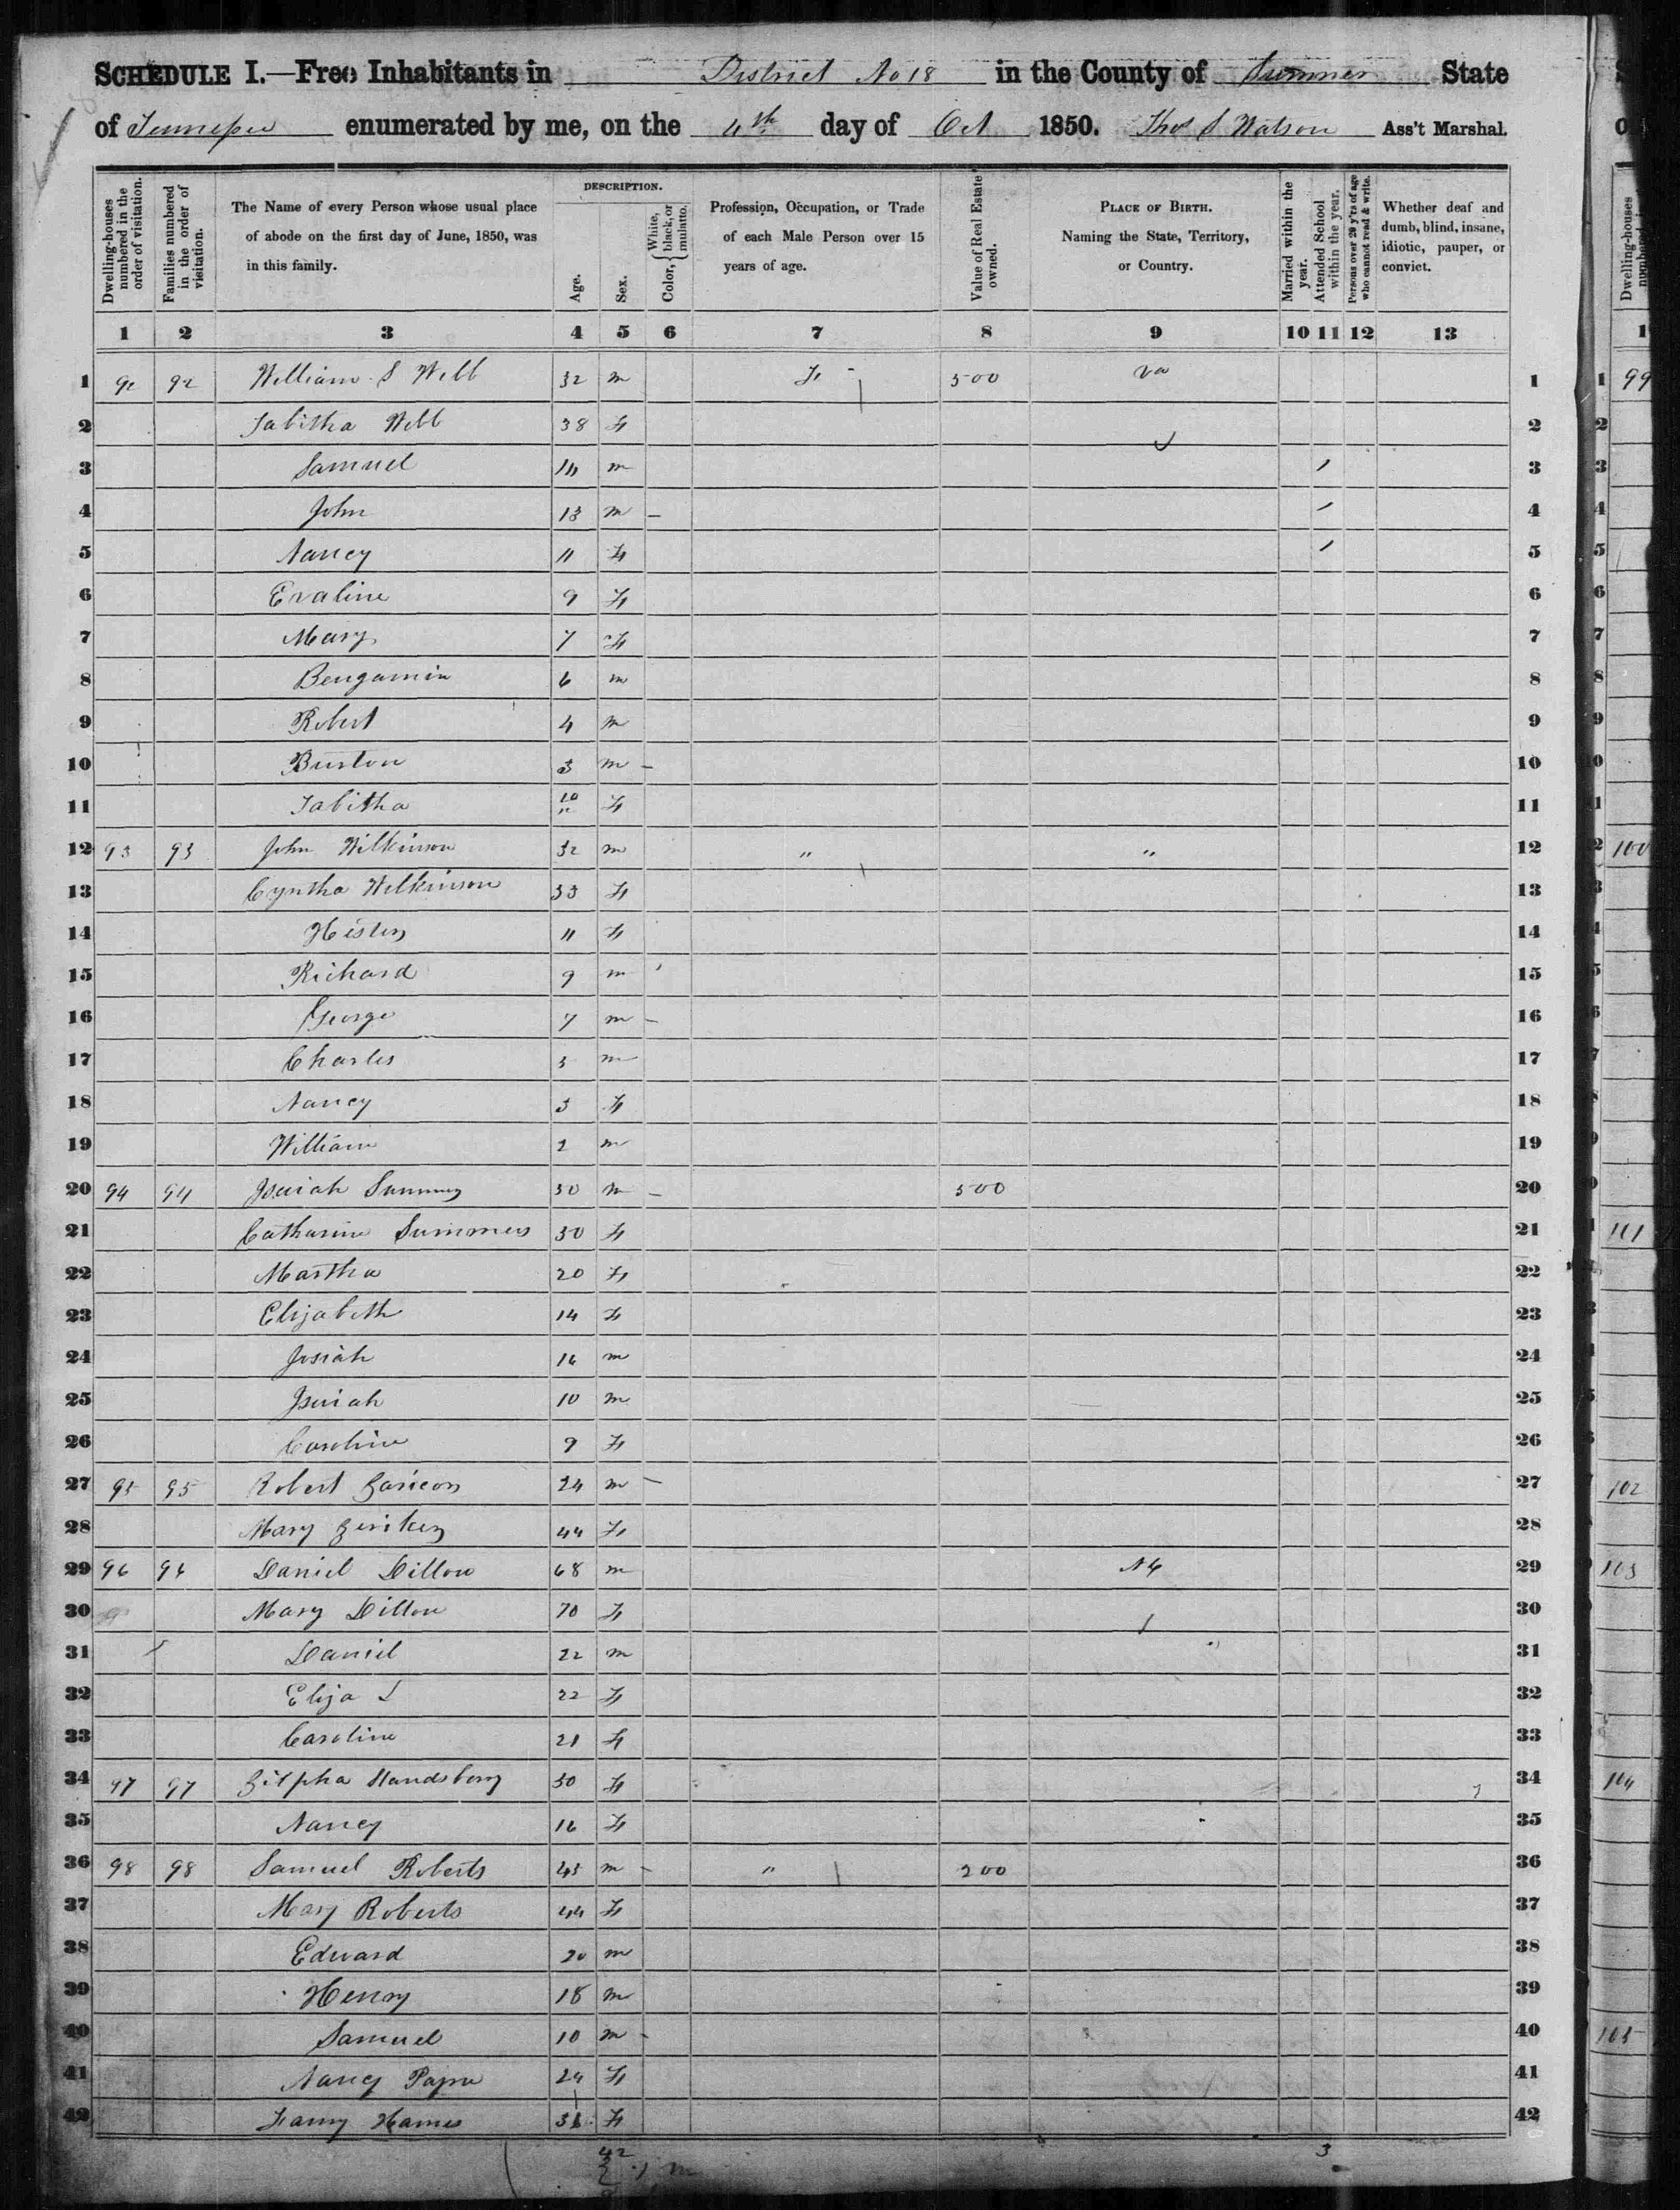 SCHEDULE I.—Free Inhabitants in District No 18 in the County of Sumner State
of Tennessee enumerated by me, on the 4th day of Oct 1850. Thos S Watson Ass't Marshal.
Dwelling-houses numbered in the order of visitation.
Families numbered in the order of visitation.
The Name of every Person whose usual place of abode on the first day of June, 1850, was in this family.
DESCRIPTION.
Age.
Sex.
Color, { White, black, or mulatto.
Profession, Occupation, or Trade of each Male Person over 15 years of age.
Value of Real Estate owned.
PLACE OF BIRTH. Naming the State, Territory, or Country.
Married within the year.
Attended School within the year.
Persons over 20 y'rs of age who cannot read & write.
Whether deaf and dumb, blind, insane, idiotic, pauper, or convict.
1 2 3 4 5 6 7 8 9 10 11 12 13
1 92 92 William S Webb 32 m F 500 Va 1
2 Tabitha Webb 38 F 2
3 Samuel 14 m / 3
4 John 13 m – / 4
5 Nancy 11 F / 5
6 Evaline 9 F 6
7 Mary 7 F 7
8 Bengamin 6 m 8
9 Robert 4 m 9
10 Burton 3 m – 10
11 Tabitha 10/12 F 11
12 93 93 John Wilkinson 32 m " " 12
13 Cyntha Wilkinson 33 F 13
14 Hester 11 F 14
15 Richard 9 m 15
16 George 7 m – 16
17 Charles 5 m 17
18 Nancy 3 F 18
19 William 2 m 19
20 94 94 Isaiah Summers 50 m – 500 20
21 Catharine Summers 50 F 21
22 Martha 20 F 22
23 Elizabeth 14 F 23
24 Josiah 16 m 24
25 Isaiah 10 m 25
26 Caroline 9 F 26
27 95 95 Robert 24 m – 27
28 Mary 44 F 28
29 96 96 Daniel Dillow 68 m NC 29
30 Mary Dillow 70 F 30
31 Daniel 22 m 31
32 Eliza L 22 F 32
33 Caroline 21 F 33
34 97 97 Zilpha 50 F 34
35 Nancy 16 F 35
36 98 98 Samuel Roberts 43 m – " 200 36
37 Mary Roberts 44 F 37
38 Edward 20 m 38
39 Henry 18 m 39
40 Samuel 10 m – 40
41 Nancy 24 F 41
42 Fanny 31 F 42
42
3
1 99
12 100
21 101
27 102
29 103
34 104
40 105